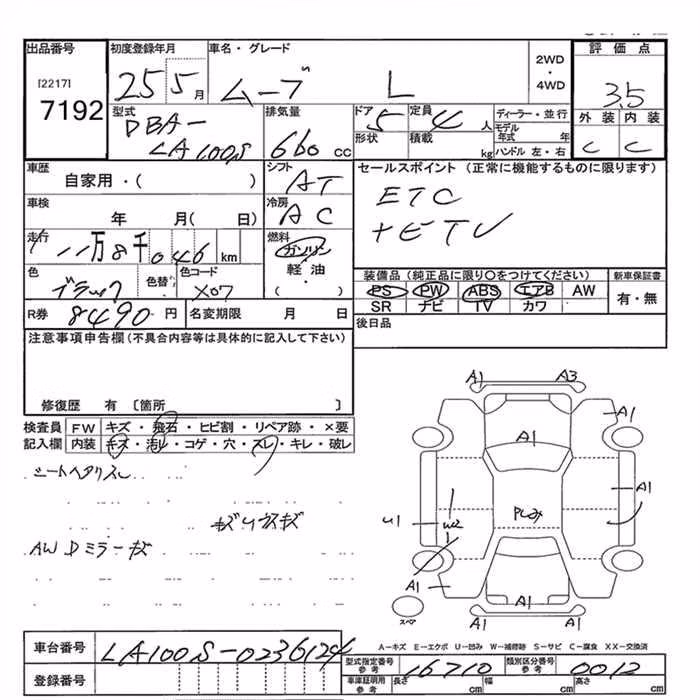 出品番号 初度登録年月 車名・グレード 2WD・4WD 評価点
[2217]
7192 25 5月 ムーブ L 3.5
型式 DBA- LA100S 排気量 660 cc ドア 5 形状 定員 4人 積載 kg ディーラー・並行 モデル年式 年 ハンドル 左・右 外装 内装
C C
車歴 自家用・( ) シフト AT セールスポイント(正常に機能するものに限ります)
車検 年 月( 日) 冷房 AC ETC
走行 11万8千046 km 燃料 ガソリン 軽油 ( )
色 ブラック 色替 色コード X07 装備品(純正品に限り○をつけてください) 新車保証書
PS PW ABS エアB AW 有・無
SR ナビ TV カワ
R券 8490円 名変期限 月 日 後日品
注意事項申告欄(不具合内容等は具体的に記入して下さい)
修復歴 有〔箇所 〕
検査員 FW キズ・飛石・ヒビ割・リペア跡・×要
記入欄 内装 キズ・汚レ・コゲ・穴・スレ・キレ・破レ
シートヘタリスレ
AW Dミラーキズ
A1 A3
A1
A1
A1
U1 W2
A1
A1 A1
A1
スペア
A-キズ E-エクボ U-凹み W-補修跡 S-サビ C-腐食 XX-交換済
車台番号 LA100S-0236124
登録番号
型式指定番号 参考 16710 類別区分番号 参考 0012
車庫証明用 参考 長さ cm 幅 cm 高さ cm